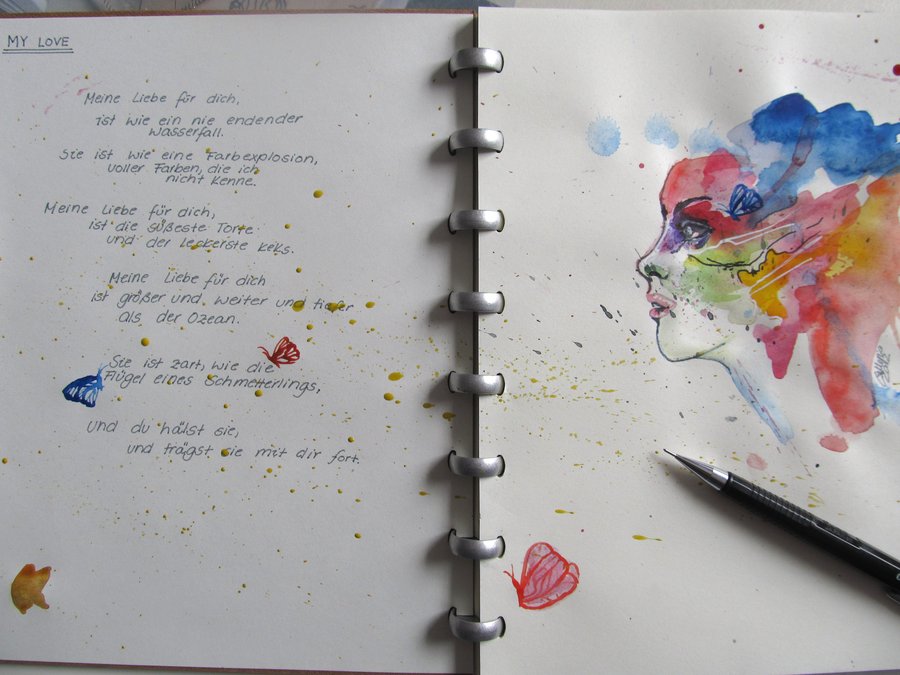 MY LOVE
Meine Liebe für dich,
ist wie ein nie endender
wasserfall.
Sie ist wie eine Farbexplosion,
voller Farben, die ich
nicht kenne.
Meine Liebe für dich,
ist die süßeste Torte
und der leckerste Keks.
Meine Liebe für dich
ist größer und weiter und tiefer
als der Ozean.
Sie ist zart, wie die
Flügel eines Schmetterlings,
und du hälst sie,
und trägst sie mit dir fort.